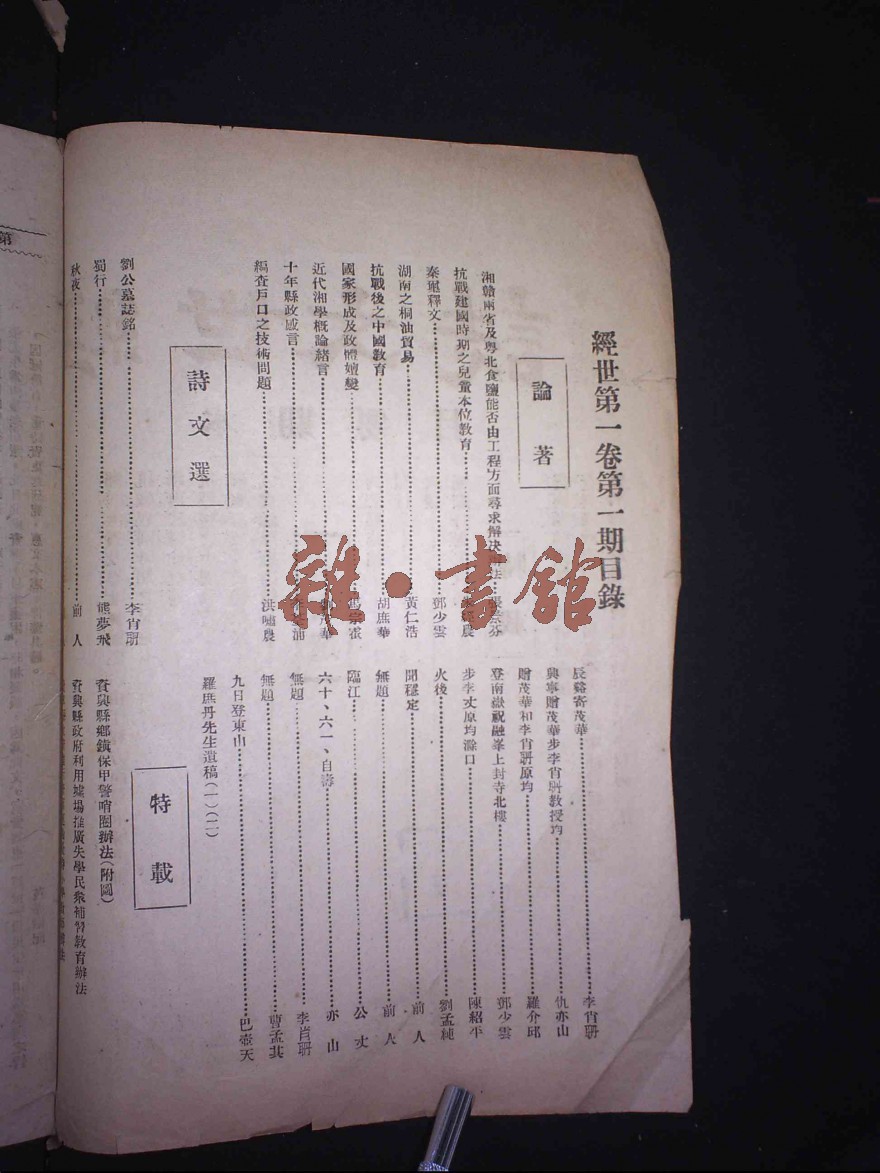 經世第一卷第一期目錄
論著
湘贛兩省及粵北食鹽能否由工程方面尋求解決 法 芬
抗戰建國時期之兒童本位教育 農
秦 釋文 鄧少雲
湖南之桐油貿易 黃仁浩
抗戰後之中國教育 胡庶華
國家形成及政體嬗變 霍
近代湘學概論緒言 華
十年縣政感言 浦
編查戶口之技術問題 洪嘯農
詩文選
劉公墓誌銘 李肖聃
蜀行 熊夢飛
秋夜 前人
辰谿寄茂華 李肖聃
興寧贈茂華步李肖聃教授均 仇亦山
贈茂華和李肖聃原均 羅介邱
登南嶽祝融峯上封寺北樓 鄧少雲
步李丈原均滁口 陳紹平
火後 劉孟純
聞穩定 前人
無題 前人
臨江 公丈
六十、六一、自壽 亦山
無題 李肖聃
無題 曹孟其
九日登東山 巴壺天
羅庶丹先生遺稿(一)(二)
特載
資興縣鄉鎮保甲警哨圈辦法(附圖)
資興縣政府利用墟場推廣失學民衆補習教育辦法
第
雜·書館